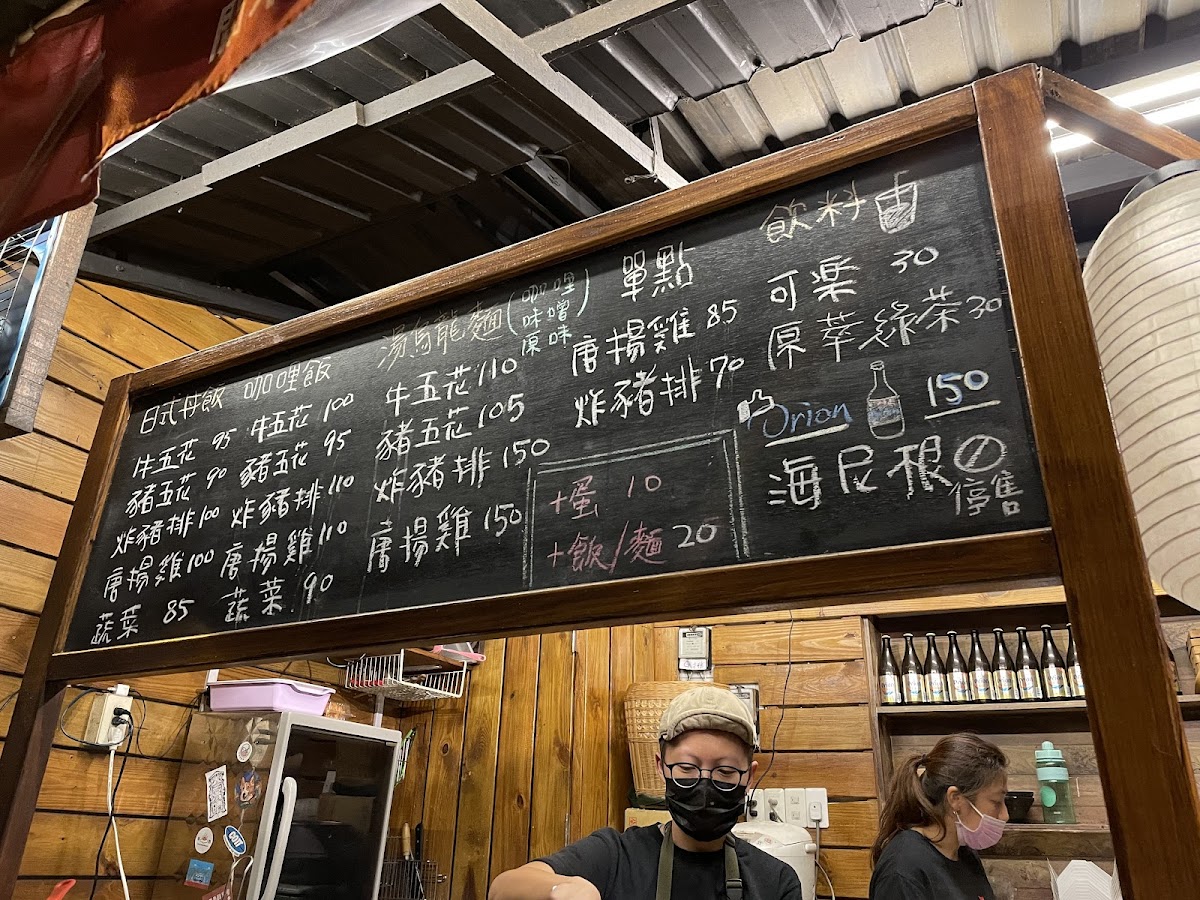 日式丼飯
牛五花 95
豬五花 90
炸豬排 100
唐揚雞 100
蔬菜 85
咖哩飯
牛五花 100
豬五花 95
炸豬排 110
唐揚雞 110
蔬菜 90
湯烏龍麵(咖哩
味噌
原味)
牛五花 110
豬五花 105
炸豬排 150
唐揚雞 150
單點
唐揚雞 85
炸豬排 70
+蛋 10
+飯/麵 20
飲料
可樂 30
原萃綠茶 30
Orion 150
海尼根
停售